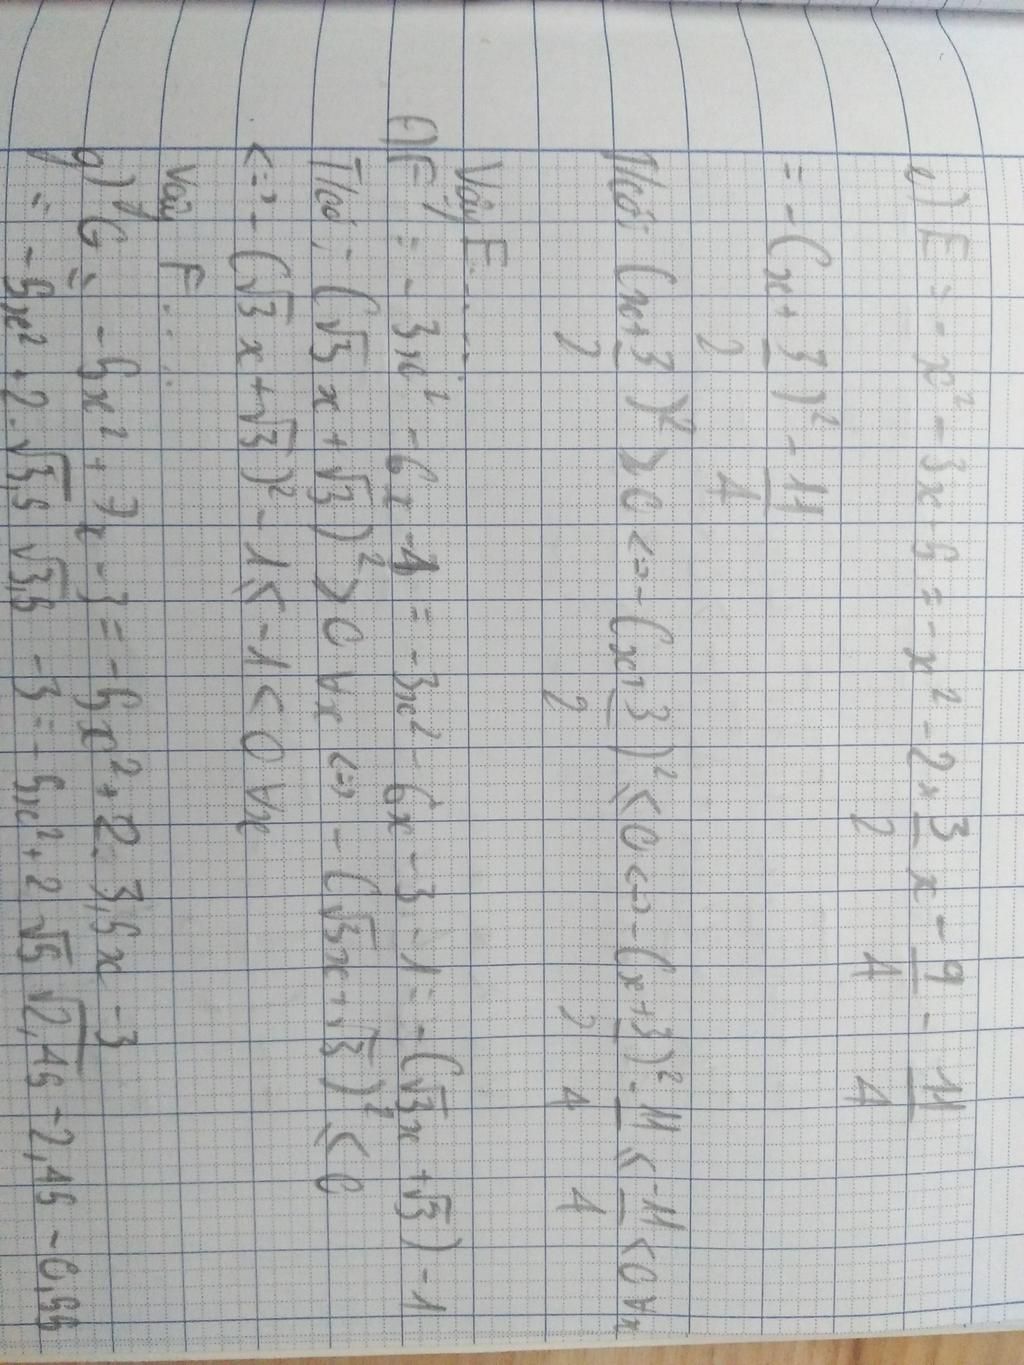 e) E = -x² - 3x - 5 = -x² - 2 × 3/2 x - 9/4 - 11/4
= -(x + 3/2)² - 11/4
Ta có: (x + 3/2)² ≥ 0 <=> -(x + 3/2)² ≤ 0 <=> -(x + 3/2)² - 11/4 ≤ -11/4 < 0 ∀x
Vậy E....
f) F = -3x² - 6x - 4 = -3x² - 6x - 3 - 1 = -(√3x + √3) - 1
Ta có: (√3x + √3)² ≥ 0 ∀x <=> -(√3x + √3)² ≤ 0
<=> -(√3x + √3)² - 1 ≤ -1 < 0 ∀x
Vậy F....
g) G = -5x² + 7x - 3 = -5x² + 2.3,5x - 3
= -5x² + 2.√3,5 √3,5 - 3 = -5x² + 2 √5 √2,45 - 2,45 - 0,55